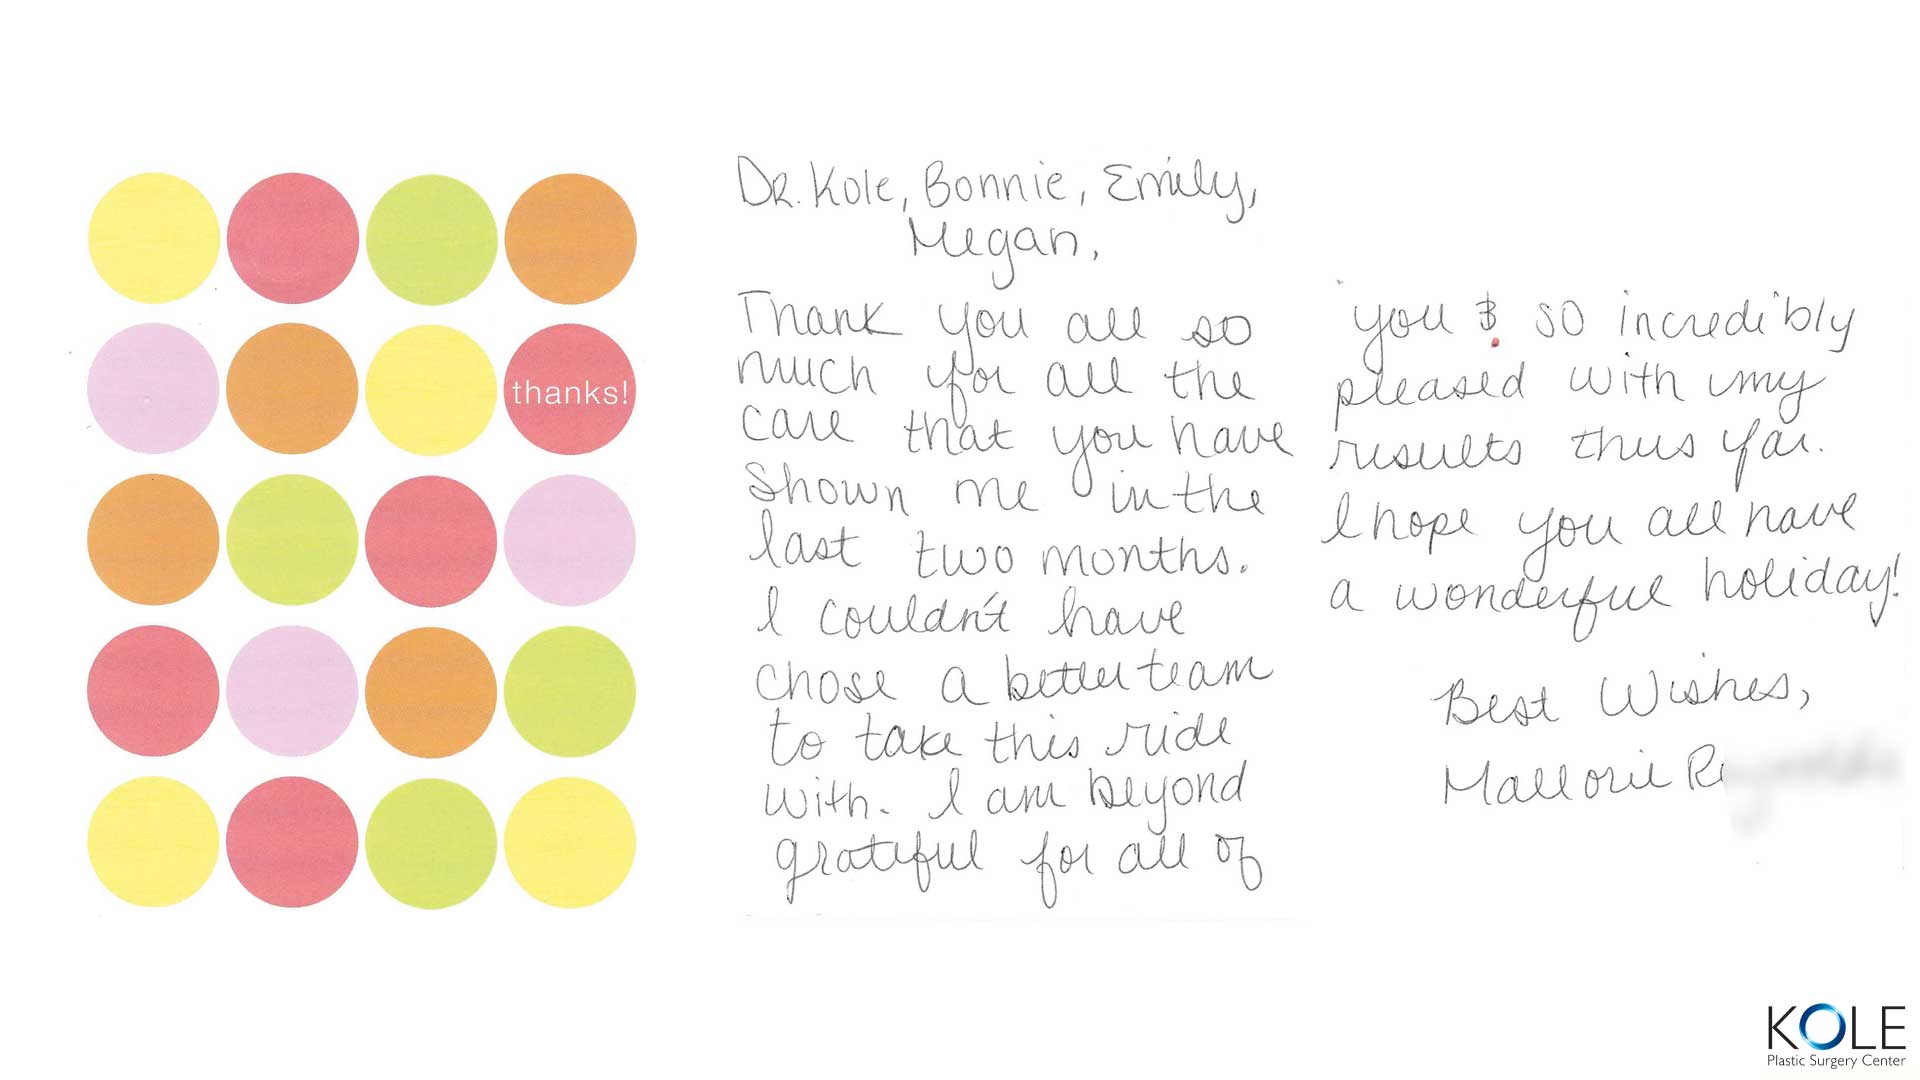 thanks!
Dr. Kole, Bonnie, Emily,
Megan,
Thank you all so
much for all the
care that you have
shown me in the
last two months.
I couldn't have
chose a better team
to take this ride
with. I am beyond
grateful for all of
you & so incredibly
pleased with my
results thus far.
I hope you all have
a wonderful holiday!
Best Wishes,
Mallorie
KOLE
Plastic Surgery Center